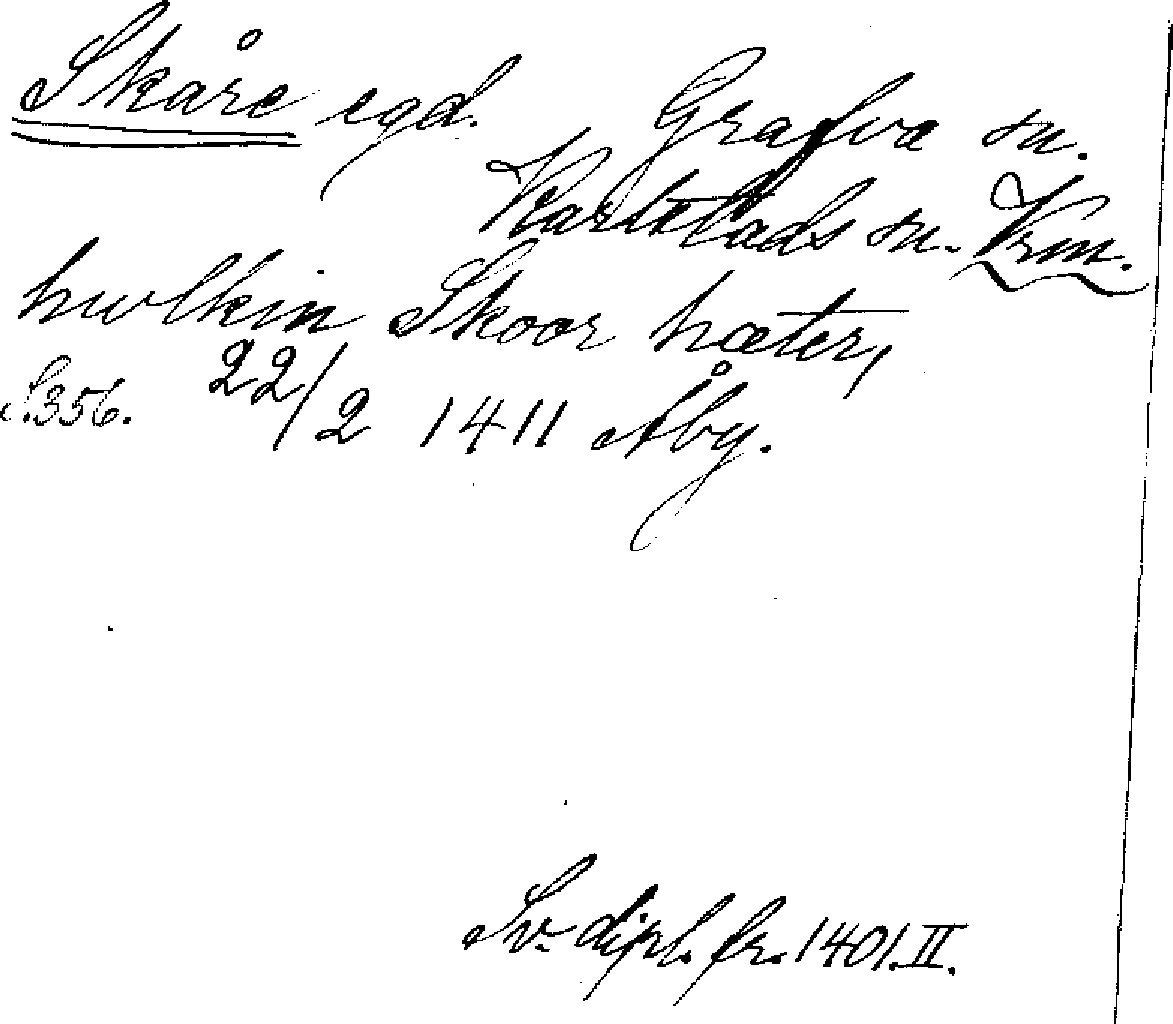 Skåre egd. Grafva sn.
Karlstads sn. Vrm.
hwlkin Skoor hæter,
S. 356. 22/2 1411 Åby.
Sv. dipl. fr. 1401. II.